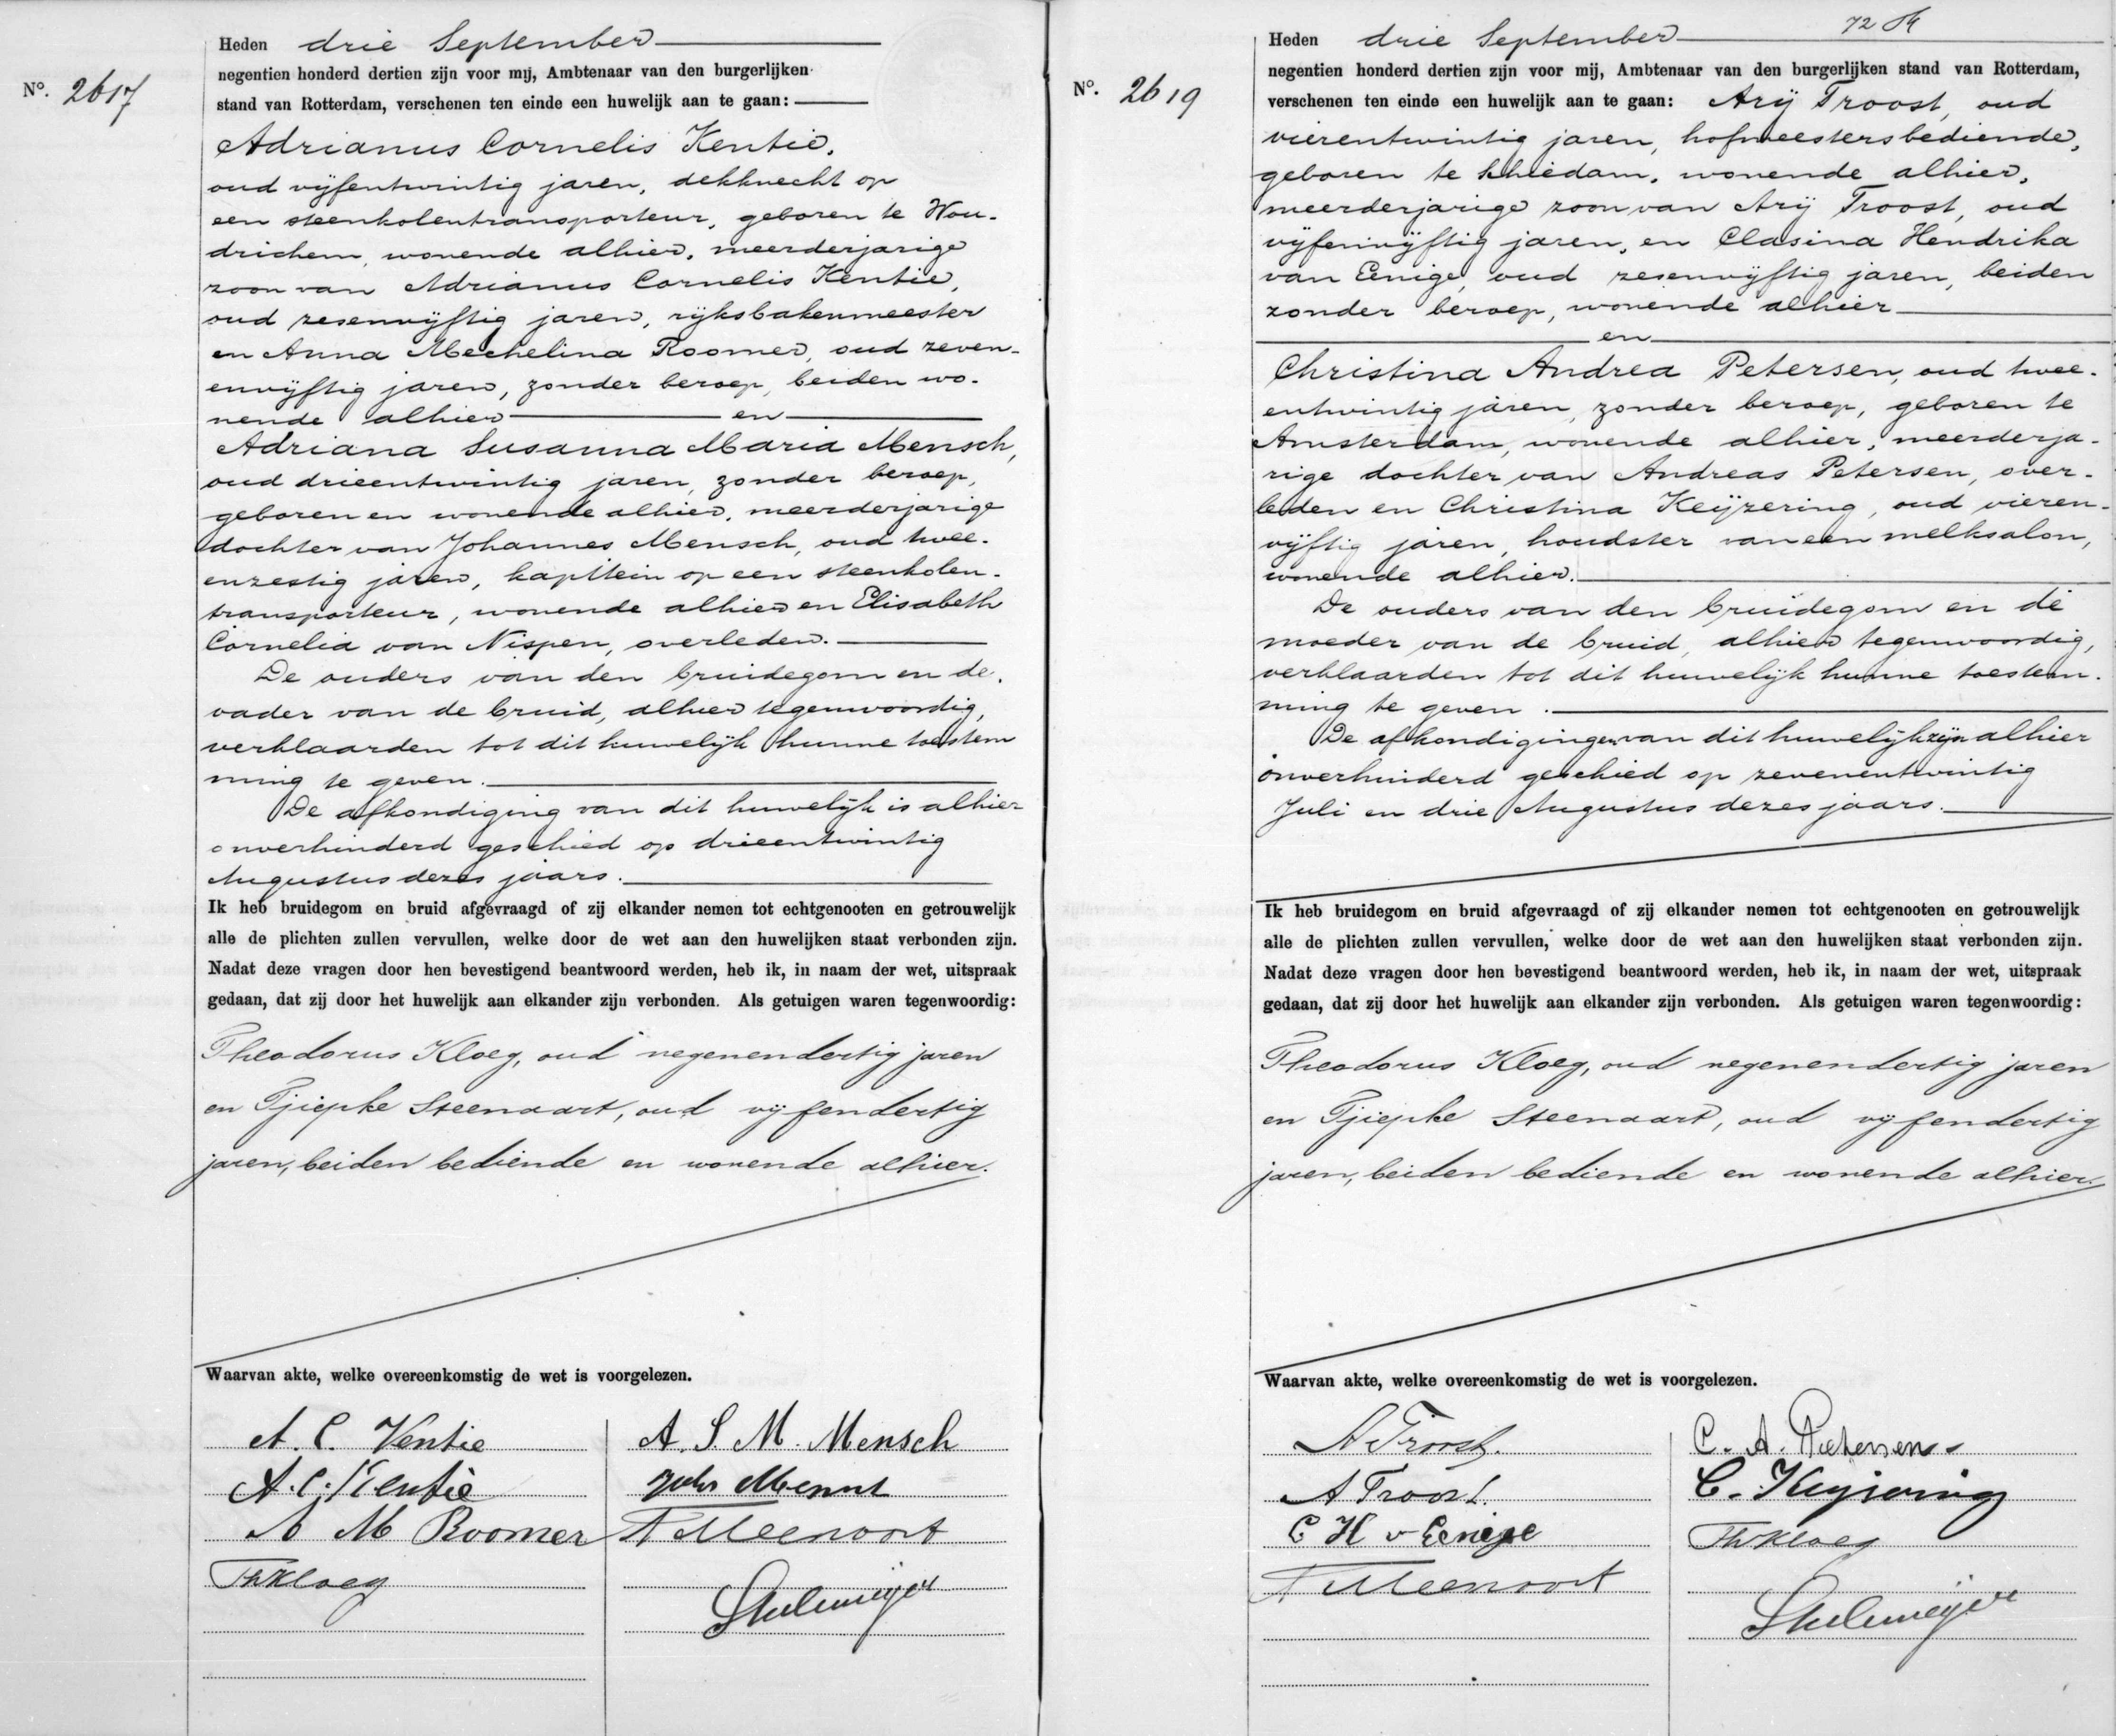 Heden drie September
negentien honderd dertien zijn voor mij, Ambtenaar van den burgerlijken
stand van Rotterdam, verschenen ten einde een huwelijk aan te gaan:
No. 2617
Adrianus Cornelis Kentie,
oud vijfentwintig jaren, dekknecht op
een steenkolentransporteur, geboren te Wou-
drichem, wonende alhier, meerderjarige
zoon van Adrianus Cornelis Kentie,
oud zesenvijftig jaren, rijksbakenmeester
en Anna Mechelina Roomer, oud zeven-
envijftig jaren, zonder beroep, beiden wo-
nende alhier en
Adriana Susanna Maria Mensch,
oud drieentwintig jaren, zonder beroep,
geboren en wonende alhier, meerderjarige
dochter van Johannes Mensch, oud twee-
enzestig jaren, kapitein op een steenkolen-
transporteur, wonende alhier en Elisabeth
Cornelia van Nispen, overleden.
De ouders van den bruidegom en de
vader van de bruid, alhier tegenwoordig,
verklaarden tot dit huwelijk hunne toestem
ming te geven.
De afkondiging van dit huwelijk is alhier
onverhinderd geschied op drieentwintig
Augustus dezes jaars.
Ik heb bruidegom en bruid afgevraagd of zij elkander nemen tot echtgenooten en getrouwelijk
alle de plichten zullen vervullen, welke door de wet aan den huwelijken staat verbonden zijn.
Nadat deze vragen door hen bevestigend beantwoord werden, heb ik, in naam der wet, uitspraak
gedaan, dat zij door het huwelijk aan elkander zijn verbonden. Als getuigen waren tegenwoordig:
Theodorus Kloeg, oud negenendertig jaren
en Tjiepke Steenaart, oud vijfendertig
jaren, beiden bediende en wonende alhier.
Waarvan akte, welke overeenkomstig de wet is voorgelezen.
A. C. Kentie
A. C. Kentie
A M Roomer
Th Kloeg
A. S. M. Mensch
Heden drie September
72
negentien honderd dertien zijn voor mij, Ambtenaar van den burgerlijken stand van Rotterdam,
No. 2619
verschenen ten einde een huwelijk aan te gaan: Arij Troost, oud
vierentwintig jaren, hofmeestersbediende,
geboren te Schiedam, wonende alhier,
meerderjarige zoon van Arij Troost, oud
vijfenvijftig jaren, en Clasina Hendrika
van Eenige, oud zesenvijftig jaren, beiden
zonder beroep, wonende alhier
en
Christina Andrea Petersen, oud twee-
entwintig jaren, zonder beroep, geboren te
Amsterdam, wonende alhier, meerderja-
rige dochter van Andreas Petersen, over-
leden en Christina Keijzering, oud vieren-
vijftig jaren, houdster van een melksalon,
wonende alhier.
De ouders van den bruidegom en de
moeder van de bruid, alhier tegenwoordig,
verklaarden tot dit huwelijk hunne toestem-
ming te geven.
De afkondigingen van dit huwelijk zijn alhier
onverhinderd geschied op zevenentwintig
Juli en drie Augustus dezes jaars.
Ik heb bruidegom en bruid afgevraagd of zij elkander nemen tot echtgenooten en getrouwelijk
alle de plichten zullen vervullen, welke door de wet aan den huwelijken staat verbonden zijn.
Nadat deze vragen door hen bevestigend beantwoord werden, heb ik, in naam der wet, uitspraak
gedaan, dat zij door het huwelijk aan elkander zijn verbonden. Als getuigen waren tegenwoordig:
Theodorus Kloeg, oud negenendertig jaren
en Tjiepke Steenaart, oud vijfendertig
jaren, beiden bediende en wonende alhier.
Waarvan akte, welke overeenkomstig de wet is voorgelezen.
A Troost.
A Troost.
C H v Eenige
C. A. Petersen
C. Keijzering
Th Kloeg